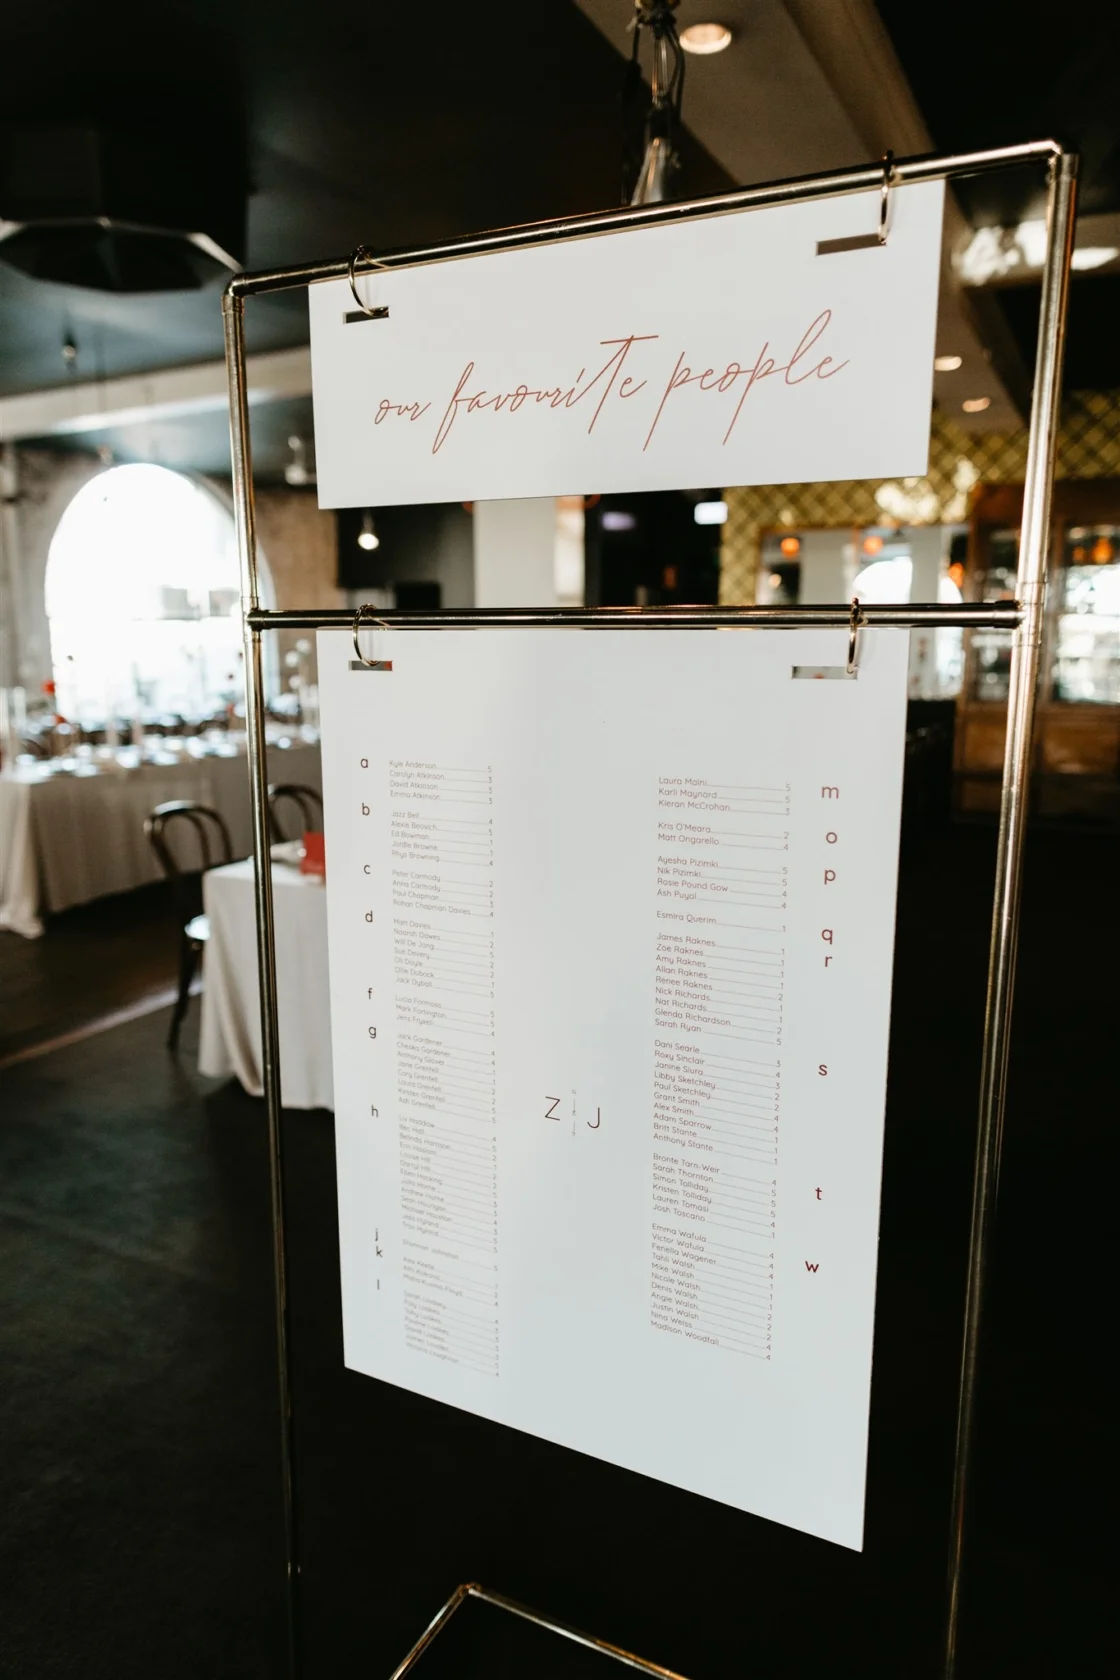 our favourite people
a
Kyle Anderson 5
Carolyn Atkinson 3
David Atkinson 3
Emma Atkinson 3
b
Jazz Bell 4
Alexie Beovich 5
Ed Bowman 1
Jordie Browne 1
Rhys Browning 4
c
Peter Carmody 2
Anna Carmody 2
Paul Chapman 3
Rohan Chapman Davies 4
d
Matt Davies 1
Naarah Dawes 2
Will De Jong 2
Sue Devery 5
Oli Doyle 2
Ollie Dubock 2
Jack Dyball
f
Lucia Formoso 5
Mark Fortington 5
Jens Fryweh 4
g
Jack Gardener 4
Cheska Gardener 4
Anthony Glover 1
Jane Grenfell 1
Cory Grenfell 1
Laura Grenfell 2
Kirsten Grenfell 2
Ash Grenfell 5
h
Liv Haddow 4
Bec Hall 5
Belinda Harrison 2
Louise Hill
Darryl Hill
Julia Horne
Andrew Hume
j
Shannon Johnston 5
k
l
Z J
Laura Maini 5
m
Karli Maynard 5
Kieran McCrohan 3
Kris O'Meara 2
o
Matt Ongarello 4
Ayesha Pizimki 5
p
Nik Pizimki 5
Rosie Pound Gow 4
Ash Puyol 4
Esmira Querim 1
q
James Raknes 1
r
Zoe Raknes 1
Amy Raknes 1
Allan Raknes 1
Renee Raknes 1
Nick Richards 2
Nat Richards 1
Glenda Richardson 2
Sarah Ryan 5
Dani Searle 3
s
Roxy Sinclair 4
Janine Siura 3
Libby Sketchley 2
Paul Sketchley 2
Grant Smith 4
Alex Smith 4
Adam Sparrow 1
Britt Stante 1
Anthony Stante 1
Bronte Tarn-Weir 4
t
Sarah Thornton 5
Simon Tolliday 5
Kristen Tolliday 5
Lauren Tomasi 4
Josh Toscano 1
Emma Wafula 4
w
Victor Wafula 4
Fenella Wagener 4
Tahli Walsh 1
Mike Walsh 1
Nicole Walsh 1
Denis Walsh 2
Angie Walsh 2
Justin Walsh 2
Nina Weiss 4
Madison Woodfall 4